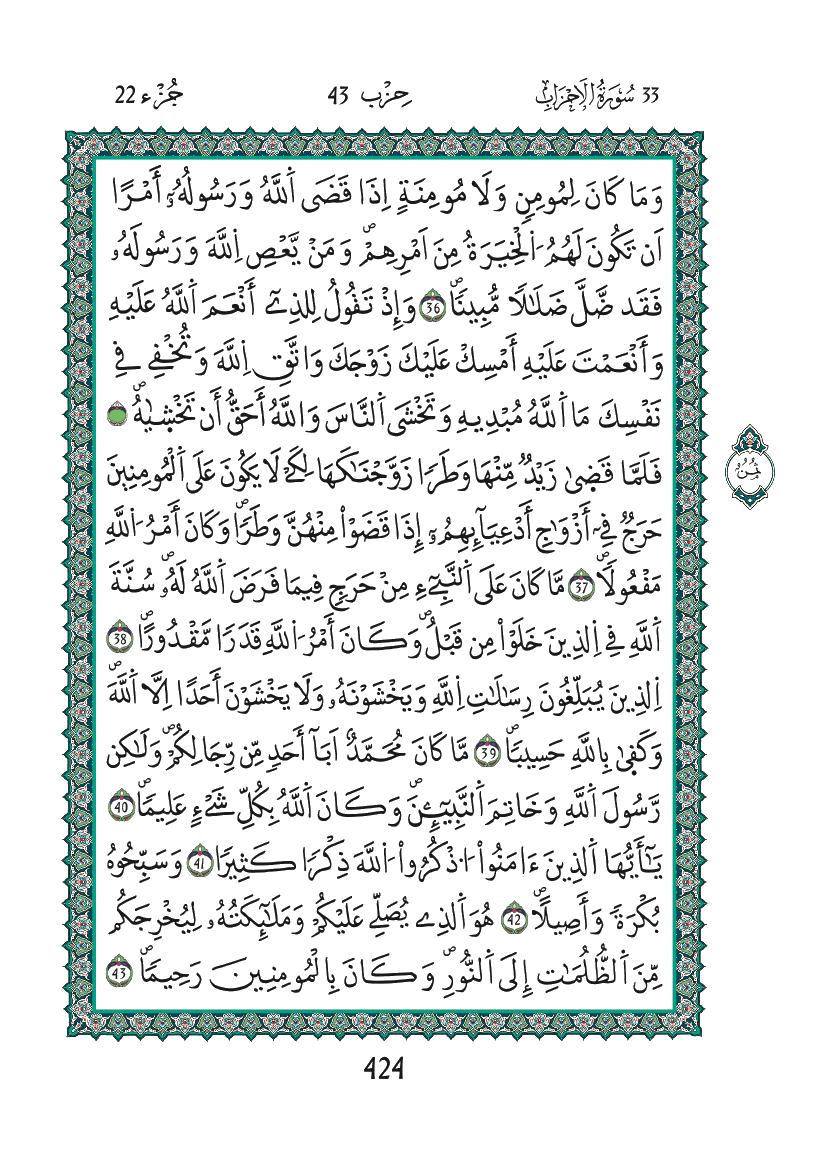 33 سُورَةُ الْأَحْزَابِ حِزْب 43 جُزْء 22
وَمَا كَانَ لِمُومِنٖ وَلَا مُومِنَةٍ إِذَا قَضَى اَ۬للَّهُ وَرَسُولُهُۥٓ أَمْرًا
اَن تَكُونَ لَهُمُ اُ۬لْخِيَرَةُ مِنَ اَمْرِهِمْۖ وَمَنْ يَّعْصِ اِ۬للَّهَ وَرَسُولَهُۥ
فَقَد ضَّلَّ ضَلَٰلًا مُّبِيناًۖ 36 وَإِذْ تَقُولُ لِلذِےٓ أَنْعَمَ اَ۬للَّهُ عَلَيْهِ
وَأَنْعَمْتَ عَلَيْهِ أَمْسِكْ عَلَيْكَ زَوْجَكَ وَاتَّقِ اِ۬للَّهَ وَتُخْفِے فِے
نَفْسِكَ مَا اَ۬للَّهُ مُبْدِيهِ وَتَخْشَى اَ۬لنَّاسَ وَاللَّهُ أَحَقُّ أَن تَخْش۪يٰهُۖ
فَلَمَّا قَض۪يٰ زَيْدٞ مِّنْهَا وَطَراٗ زَوَّجْنَٰكَهَا لِكَےْ لَا يَكُونَ عَلَى اَ۬لْمُومِنِينَ
حَرَجٞ فِےٓ أَزْوَٰجِ أَدْعِيَآئِهِمُۥٓ إِذَا قَضَوْاْ مِنْهُنَّ وَطَراٗۖ وَكَانَ أَمْرُ اُ۬للَّهِ
مَفْعُولاًۖ 37 مَّا كَانَ عَلَى اَ۬لنَّبِےٓءِ مِنْ حَرَجٖ فِيمَا فَرَضَ اَ۬للَّهُ لَهُۥۖ سُنَّةَ
اَ۬للَّهِ فِے اِ۬لذِينَ خَلَوْاْ مِن قَبْلُۖ وَكَانَ أَمْرُ اُ۬للَّهِ قَدَراٗ مَّقْدُوراًۖ 38
اِ۬لذِينَ يُبَلِّغُونَ رِسَٰلَٰتِ اِ۬للَّهِ وَيَخْشَوْنَهُۥ وَلَا يَخْشَوْنَ أَحَدًا اِلَّا اَ۬للَّهَۖ
وَكَف۪يٰ بِاللَّهِ حَسِيباٗۖ 39 مَّا كَانَ مُحَمَّدٌ اَبَآ أَحَدٖ مِّن رِّجَالِكُمْۖ وَلَٰكِن
رَّسُولَ اَ۬للَّهِ وَخَاتِمَ اَ۬لنَّبِيٓـِٕينَۖ وَكَانَ اَ۬للَّهُ بِكُلِّ شَےْءٍ عَلِيماٗۖ 40
يَٰٓأَيُّهَا اَ۬لذِينَ ءَامَنُواْ اُ۟ذْكُرُواْ اُ۬للَّهَ ذِكْراٗ كَثِيراٗ 41 وَسَبِّحُوهُ
بُكْرَةٗ وَأَصِيلاًۖ 42 هُوَ اَ۬لذِے يُصَلِّے عَلَيْكُمْ وَمَلَٰٓئِكَتُهُۥ لِيُخْرِجَكُم
مِّنَ اَ۬لظُّلُمَٰتِ إِلَى اَ۬لنُّورِۖ وَكَانَ بِالْمُومِنِينَ رَحِيماٗۖ 43
ثُمُن
424